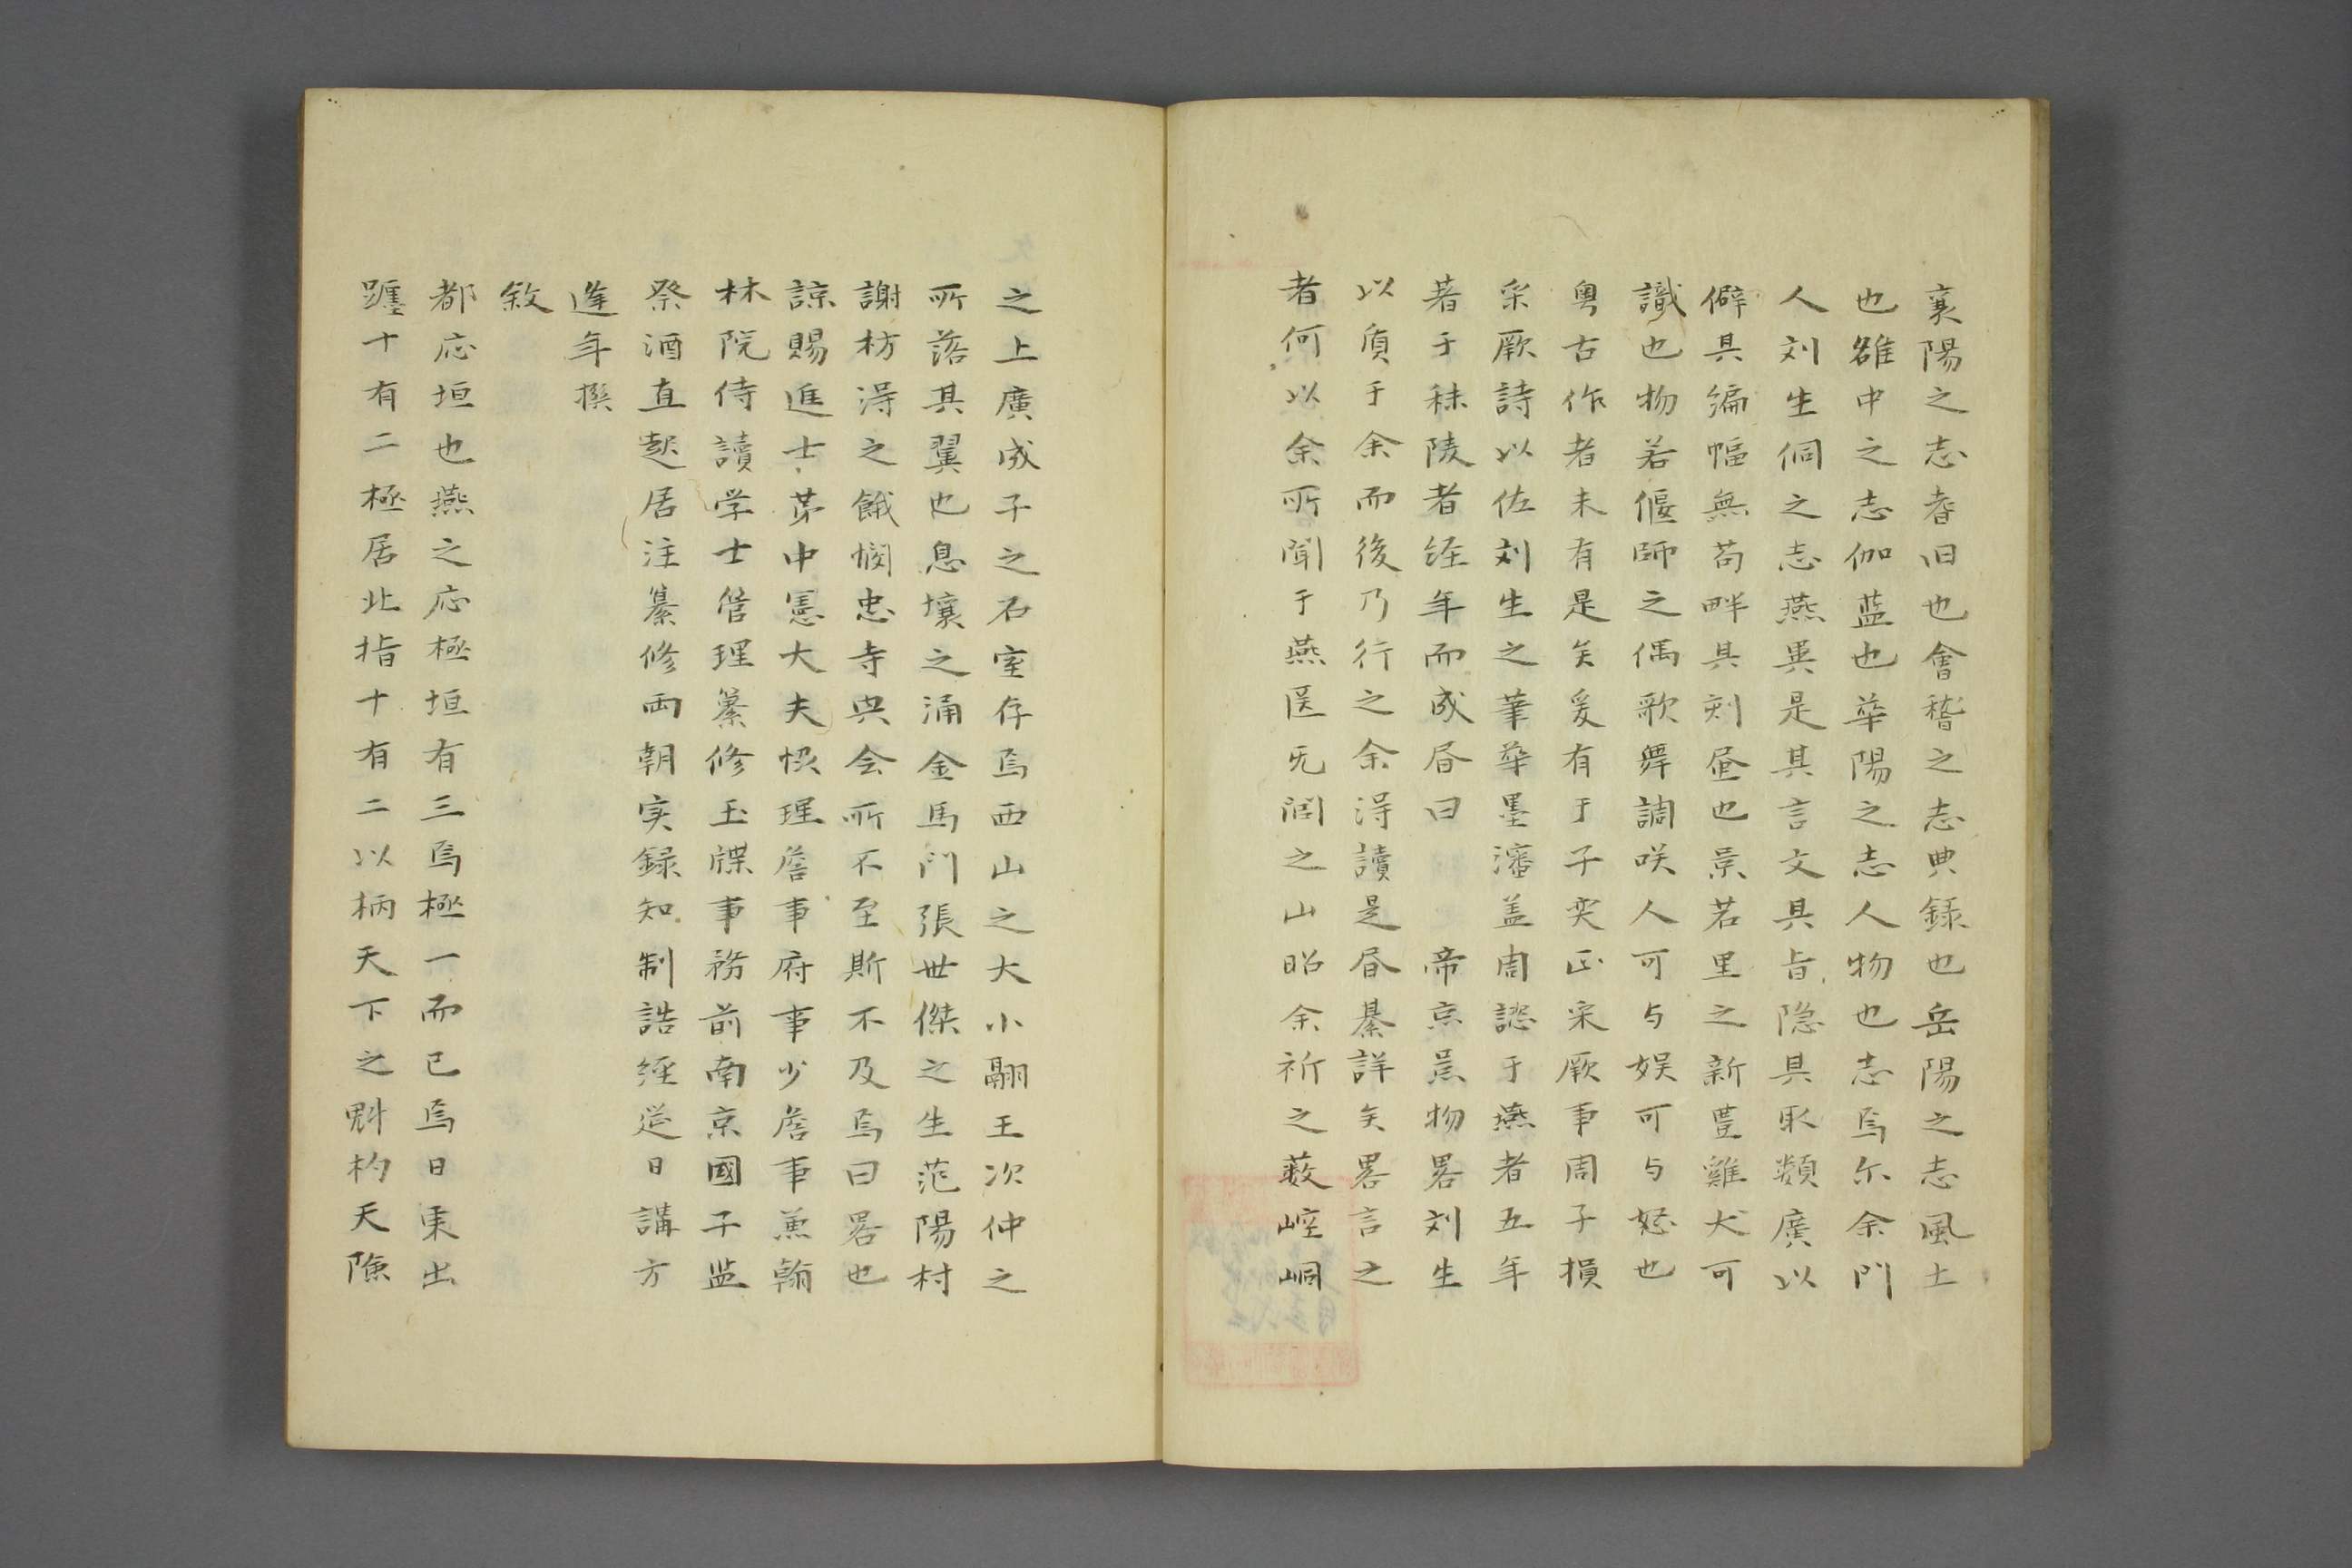 襄陽之志耆旧也會稽之志典録也岳陽之志風土
也雒中之志伽蓝也華陽之志人物也志焉尓余門
人刘生侗之志燕異是其言文其旨隐其取類廣以
僻其编幅無苟畔其刻画也景若里之新豊雞犬可
識也物若偃師之偶歌舞調咲人可与娱可与怒也
粤古作者未有是矣爰有于子奕正采厥事周子損
采厥詩以佐刘生之筆華墨瀋盖周諮于燕者五年
著于秣陵者经年而成昏曰　　帝京景物畧刘生
以質于余而後乃行之余淂讀是昏綦詳矣畧言之
者何以余所闻于燕医无闾之山昭余祈之薮崆峒
之上廣成子之石室存焉西山之大小翮王次仲之
所落其翼也息壤之涌金馬门張世傑之生范陽村
謝枋淂之餓悯忠寺典会所不至斯不及焉曰畧也
諒賜進士苐中憲大夫恊理詹事府事少詹事兼翰
林院侍讀学士管理纂修玉牒事務前南京國子监
祭酒直起居注纂修両朝实録知制誥經莚日講方
逢年撰
敘
都应垣也燕之应極垣有三焉極一而已焉日東出
躔十有二極居北指十有二以柄天下之魁杓天險